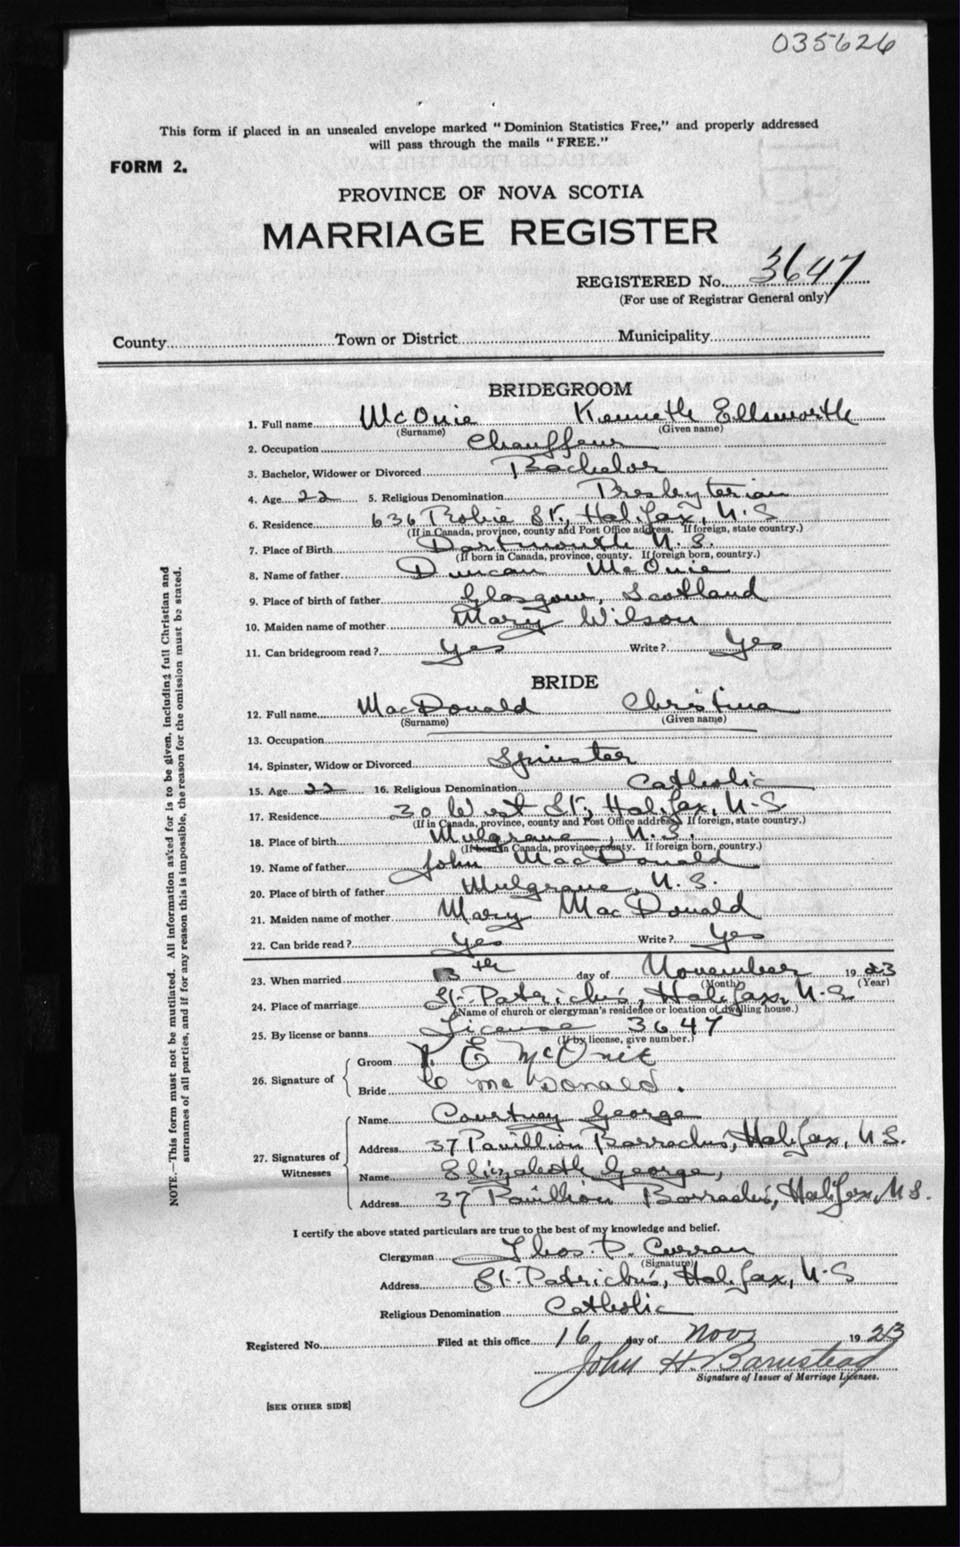 035626
This form if placed in an unsealed envelope marked "Dominion Statistics Free," and properly addressed
will pass through the mails "FREE."
FORM 2.
PROVINCE OF NOVA SCOTIA
MARRIAGE REGISTER
REGISTERED No. 3647
(For use of Registrar General only)
County Town or District Municipality
BRIDEGROOM
1. Full name McOnie Kenneth Ellsworth
(Surname) (Given name)
2. Occupation Chauffeur
3. Bachelor, Widower or Divorced Bachelor
4. Age 22 5. Religious Denomination Presbyterian
6. Residence 636 Robie St, Halifax, N.S
(If in Canada, province, county and Post Office address. If foreign, state country.)
7. Place of Birth Dartmouth N.S.
(If born in Canada, province, county. If foreign born, country.)
8. Name of father Duncan McOnie
9. Place of birth of father Glasgow, Scotland
10. Maiden name of mother Mary Wilson
11. Can bridegroom read? Yes Write? Yes
BRIDE
12. Full name MacDonald Christina
(Surname) (Given name)
13. Occupation
14. Spinster, Widow or Divorced Spinster
15. Age 22 16. Religious Denomination Catholic
17. Residence 30 West St, Halifax, N-S
(If in Canada, province, county and Post Office address If foreign, state country.)
18. Place of birth Mulgrave, N.S.
(If born in Canada, province, county. If foreign born, country.)
19. Name of father John MacDonald
20. Place of birth of father Mulgrave, N.S.
21. Maiden name of mother Mary MacDonald
22. Can bride read? Yes Write? Yes
23. When married th day of November 1923
(Month) (Year)
24. Place of marriage St. Patrick's, Halifax, N-S
(Name of church or clergyman's residence or location of dwelling house.)
25. By license or banns License 3647
(If by license, give number.)
26. Signature of
Groom K E McOnie
Bride C McDonald.
27. Signatures of Witnesses
Name Courtney George
Address 37 Pavillion Barracks, Halifax, N.S.
Name Elizabeth George,
Address 37 Pavillion Barracks, Halifax, N.S.
I certify the above stated particulars are true to the best of my knowledge and belief.
Clergyman Thos. P. Curran
(Signature)
Address St. Patrick's, Halifax, N-S
Religious Denomination Catholic
Registered No. Filed at this office 16 day of Nov 1923
John H. Barnstead
Signature of Issuer of Marriage Licenses.
[SEE OTHER SIDE]
NOTE.—This form must not be mutilated. All information asked for is to be given, including full Christian and
surnames of all parties, and if for any reason this is impossible, the reason for the omission must be stated.